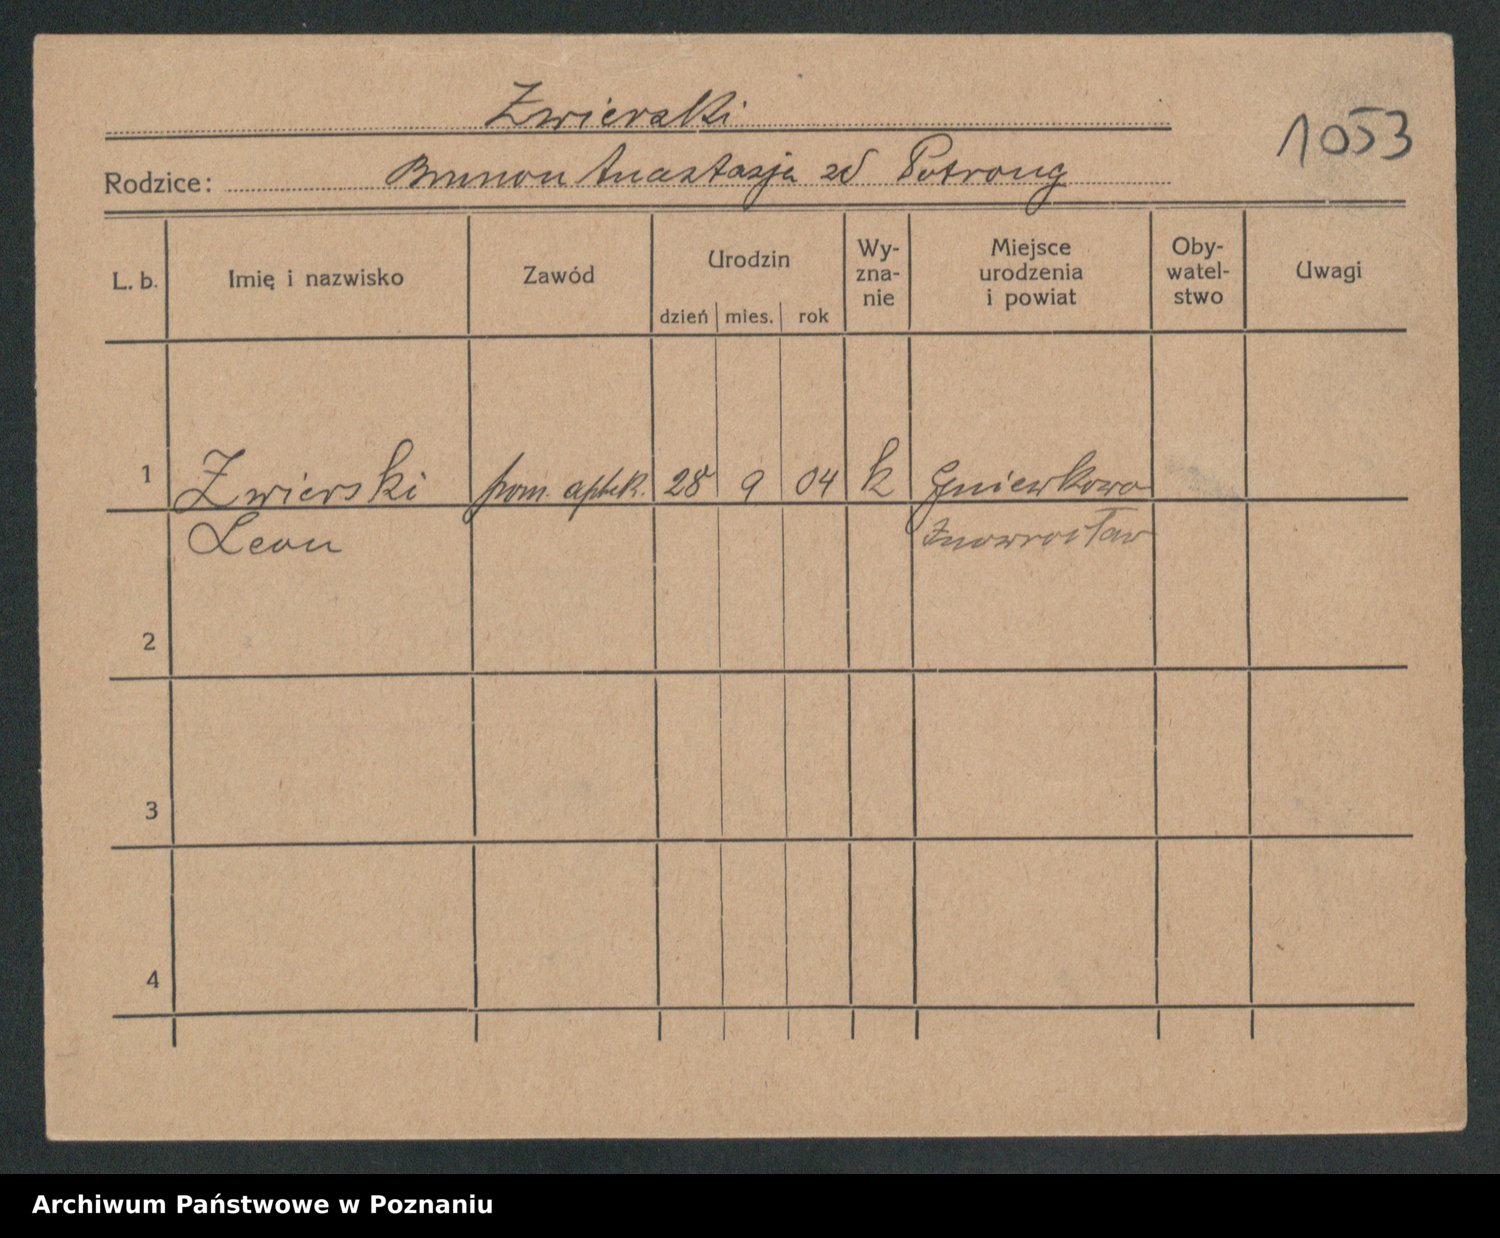 Zwierski
1053
Rodzice: Brunon Anastazja zd Potrong
L. b. Imię i nazwisko Zawód Urodzin dzień mies. rok Wy-zna-nie Miejsce urodzenia i powiat Oby-watel-stwo Uwagi
1 Zwierski pom. aptek. 28 9 04 k Gniewkowo
Leon Inowrocław
2
3
4
Archiwum Państwowe w Poznaniu